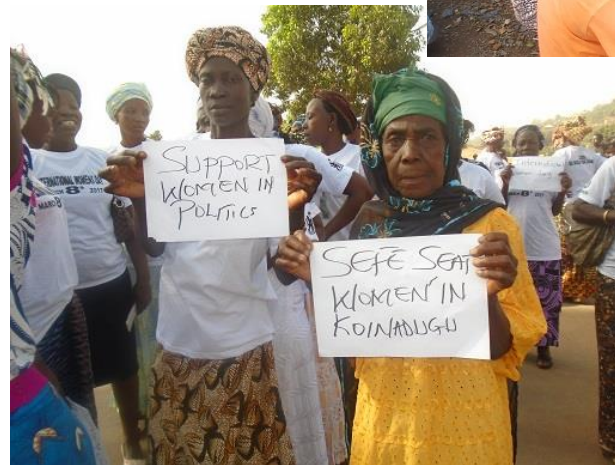 SUPPORT
WOMEN IN
POLITICS
SEFE SEAT
WOMEN IN
KOINADUGU
INTERNATIONAL WOMENS DAY
MARCH 8